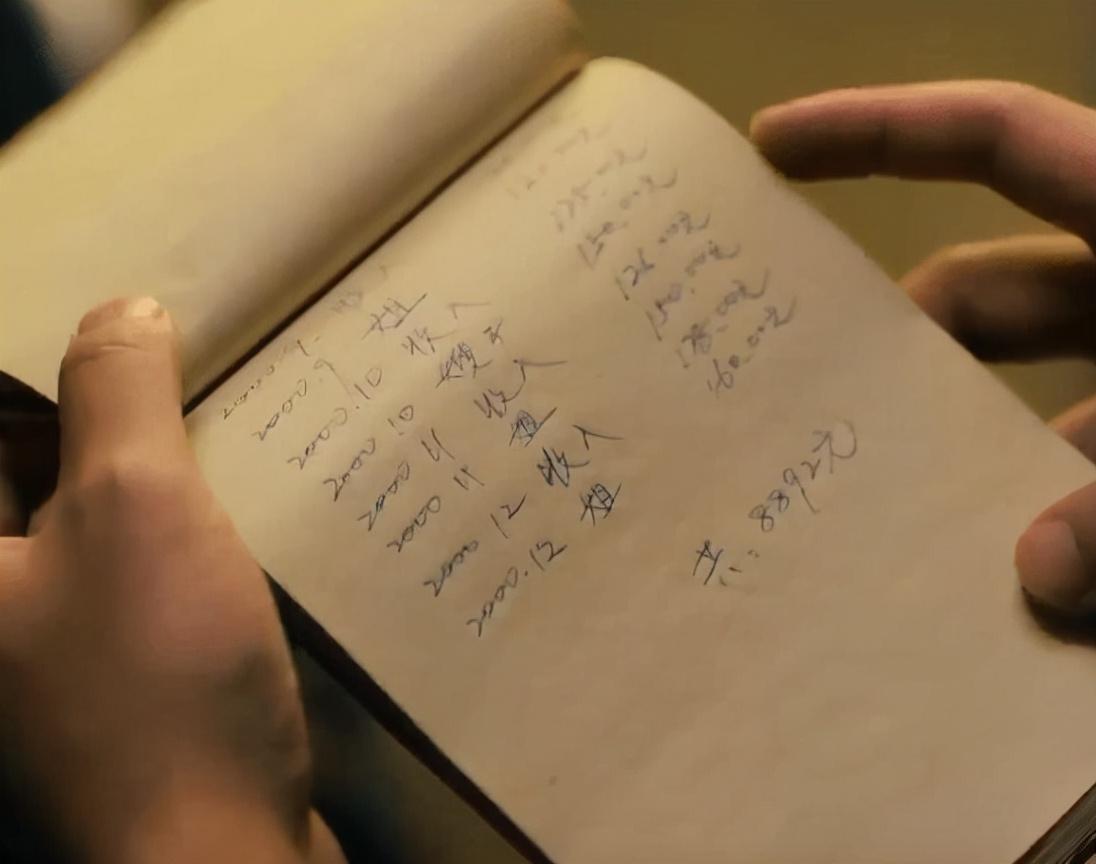 2000.9 姐
2000.10 收入 175.00元
2000.10 嫂子 150.00元
2000 11 收入 126.00元
2000 11 姐 150.00元
2000 12 收入 178.00元
2000.12 姐 160.00元
共：8892元